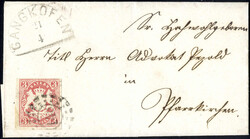 GANGKOFEN
Sr. Hochwohlgeboren
Titl Herrn Advokat
in
Pfarrkirchen